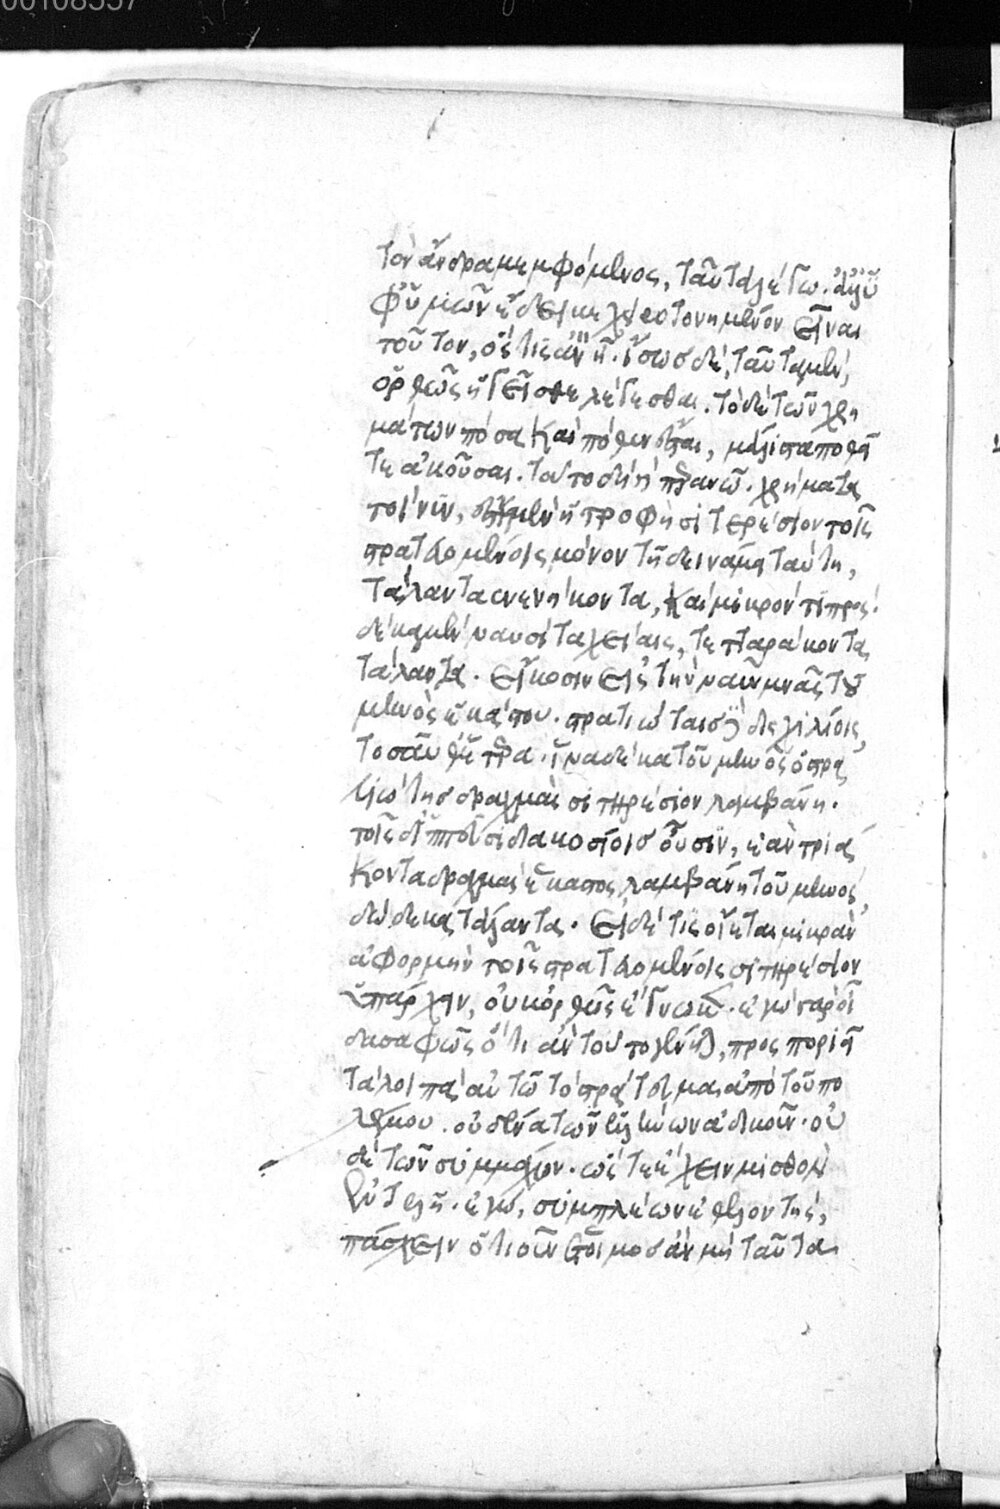 00108557
τὸν ἄνδρα μεμφόμενος, ταῦτα λέγω. ἀλλ' ὑ
φ' ὑμῶν ἔδει κεχειροτονημένον εἶναι
τοῦτον, ὅστις ἂν ᾖ. ἴσως δὲ, ταῦτα μὲν,
ὀρθῶς ἡγεῖσθε λέγεσθαι. τὸ δὲ τῶν χρη
μάτων πόσα καὶ πόθεν ἔσται, μάλιστα ποθεῖ
τε ἀκοῦσαι. τοῦτο δὴ ἢ περανῶ. χρήματα
τοίνυν, ἔστι μὲν ἡ τροφὴ σιτηρέσιον τοῖς
στρατευομένοις μόνον τῇ δυνάμει ταύτῃ,
τάλαντα ἐνενήκοντα, καὶ μικρόν τι πρός.
δέκα μὲν ναυσὶ ταχείαις, τετταράκοντα
τάλαντα. εἴκοσιν εἰς τὴν ναῦν μναῖ τοῦ
μηνὸς ἑκάστου. στρατιώταις δὲ δισχιλίοις,
τοσαῦθ' ἕτερα. ἵνα δέκα τοῦ μηνὸς ὁ στρα
τιώτης δραχμὰς σιτηρέσιον λαμβάνῃ.
τοῖς δ' ἱππεῦσι διακοσίοις οὖσιν, ἐὰν τριά
κοντα δραχμὰς ἕκαστος λαμβάνῃ τοῦ μηνός,
δώδεκα τάλαντα. εἰ δέ τις οἴεται μικρὰν
ἀφορμὴν τοῖς στρατευομένοις σιτηρέσιον
ὑπάρχειν, οὐκ ὀρθῶς ἔγνωκεν. ἐγὼ γὰρ οἶ
δα σαφῶς ὅτι ἂν τοῦτο γένηται, προσποριεῖ
τὰ λοιπὰ αὐτὸ τὸ στράτευμα ἀπὸ τοῦ πο
λέμου. οὐδένα τῶν ἑλλήνων ἀδικοῦν. οὐ
δὲ τῶν συμμάχων. ὥστε ἔχειν μισθὸν
ἐντελῆ. ἐγὼ, συμπλέων ἐθελοντὴς,
πάσχειν ὁτιοῦν ἕτοιμος ἂν μὴ ταῦτα